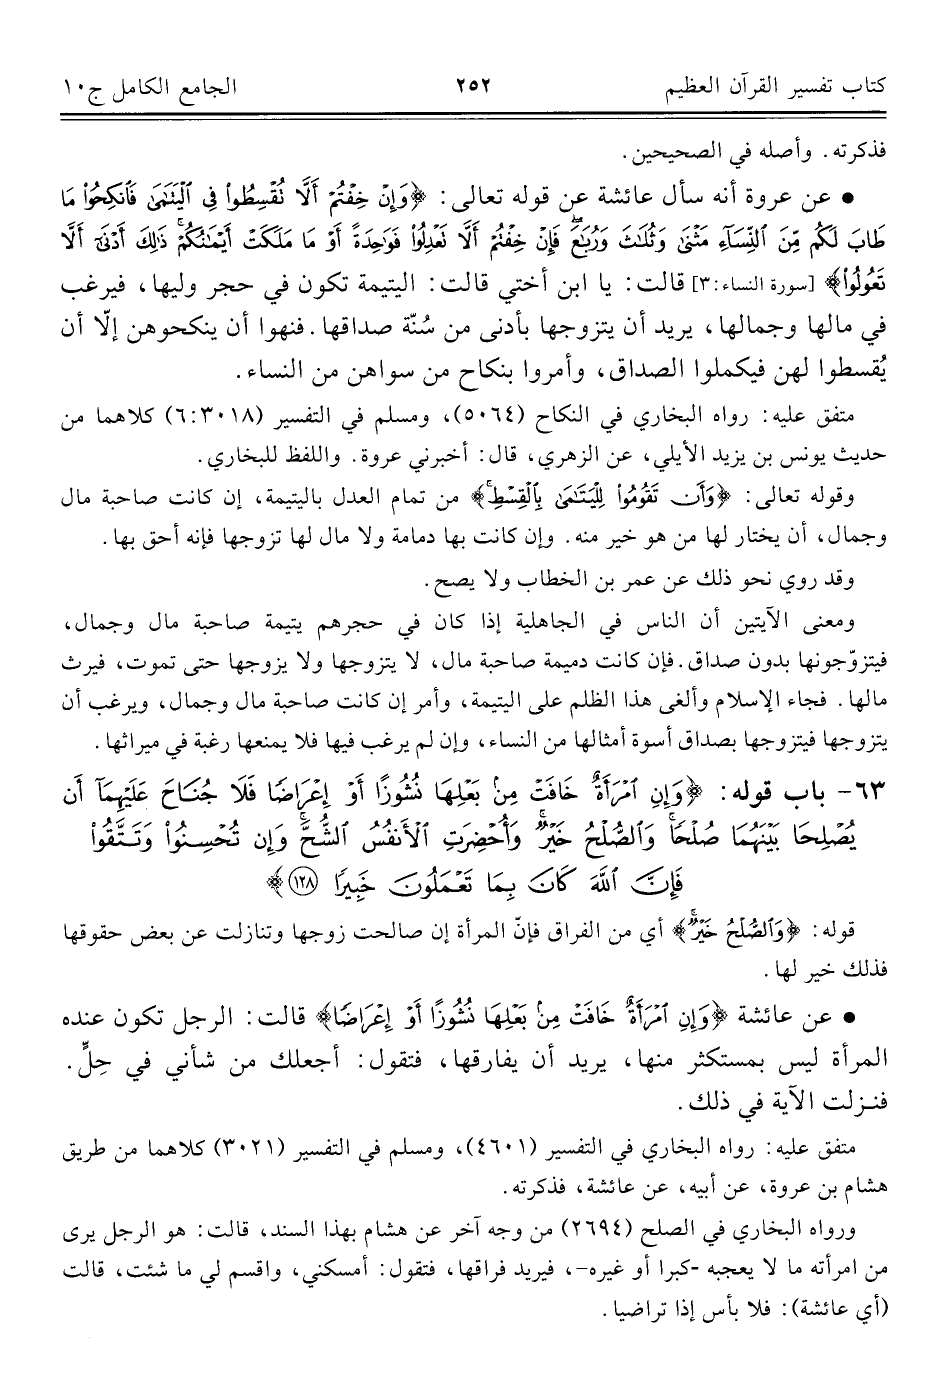 كتاب تفسير القرآن العظيم ٢٥٢ الجامع الكامل ج١٠
فذكرته. وأصله في الصحيحين.
• عن عروة أنه سأل عائشة عن قوله تعالى: ﴿وَإِنْ خِفْتُمْ أَلَّا تُقْسِطُوا۟ فِى ٱلْيَتَٰمَىٰ فَٱنكِحُوا۟ مَا
طَابَ لَكُم مِّنَ ٱلنِّسَآءِ مَثْنَىٰ وَثُلَٰثَ وَرُبَٰعَ ۖ فَإِنْ خِفْتُمْ أَلَّا تَعْدِلُوا۟ فَوَٰحِدَةً أَوْ مَا مَلَكَتْ أَيْمَٰنُكُمْ ۚ ذَٰلِكَ أَدْنَىٰٓ أَلَّا
تَعُولُوا۟﴾ [سورة النساء: ٣] قالت: يا ابن أختي قالت: اليتيمة تكون في حجر وليها، فيرغب
في مالها وجمالها، يريد أن يتزوجها بأدنى من سُنّة صداقها. فنهوا أن ينكحوهن إلّا أن
يُقسطوا لهن فيكملوا الصداق، وأمروا بنكاح من سواهن من النساء.
متفق عليه: رواه البخاري في النكاح (٥٠٦٤)، ومسلم في التفسير (٦:٣٠١٨) كلاهما من
حديث يونس بن يزيد الأيلي، عن الزهري، قال: أخبرني عروة. واللفظ للبخاري.
وقوله تعالى: ﴿وَأَن تَقُومُوا۟ لِلْيَتَٰمَىٰ بِٱلْقِسْطِ ۚ﴾ من تمام العدل باليتيمة، إن كانت صاحبة مال
وجمال، أن يختار لها من هو خير منه. وإن كانت بها دمامة ولا مال لها تزوجها فإنه أحق بها.
وقد روي نحو ذلك عن عمر بن الخطاب ولا يصح.
ومعنى الآيتين أن الناس في الجاهلية إذا كان في حجرهم يتيمة صاحبة مال وجمال،
فيتزوّجونها بدون صداق. فإن كانت دميمة صاحبة مال، لا يتزوجها ولا يزوجها حتى تموت، فيرث
مالها. فجاء الإسلام وألغى هذا الظلم على اليتيمة، وأمر إن كانت صاحبة مال وجمال، ويرغب أن
يتزوجها فيتزوجها بصداق أسوة أمثالها من النساء، وإن لم يرغب فيها فلا يمنعها رغبة في ميراثها.
٦٣- باب قوله: ﴿وَإِنِ ٱمْرَأَةٌ خَافَتْ مِنۢ بَعْلِهَا نُشُوزًا أَوْ إِعْرَاضًا فَلَا جُنَاحَ عَلَيْهِمَآ أَن
يُصْلِحَا بَيْنَهُمَا صُلْحًا ۚ وَٱلصُّلْحُ خَيْرٌ ۗ وَأُحْضِرَتِ ٱلْأَنفُسُ ٱلشُّحَّ ۚ وَإِن تُحْسِنُوا۟ وَتَتَّقُوا۟
فَإِنَّ ٱللَّهَ كَانَ بِمَا تَعْمَلُونَ خَبِيرًا ١٢٨﴾
قوله: ﴿وَٱلصُّلْحُ خَيْرٌ ۗ﴾ أي من الفراق فإنّ المرأة إن صالحت زوجها وتنازلت عن بعض حقوقها
فذلك خير لها.
• عن عائشة ﴿وَإِنِ ٱمْرَأَةٌ خَافَتْ مِنۢ بَعْلِهَا نُشُوزًا أَوْ إِعْرَاضًا﴾ قالت: الرجل تكون عنده
المرأة ليس بمستكثر منها، يريد أن يفارقها، فتقول: أجعلك من شأني في حِلٍّ.
فنـزلت الآية في ذلك.
متفق عليه: رواه البخاري في التفسير (٤٦٠١)، ومسلم في التفسير (٣٠٢١) كلاهما من طريق
هشام بن عروة، عن أبيه، عن عائشة، فذكرته.
ورواه البخاري في الصلح (٢٦٩٤) من وجه آخر عن هشام بهذا السند، قالت: هو الرجل يرى
من امرأته ما لا يعجبه -كبرا أو غيره-، فيريد فراقها، فتقول: أمسكني، واقسم لي ما شئت، قالت
(أي عائشة): فلا بأس إذا تراضيا.